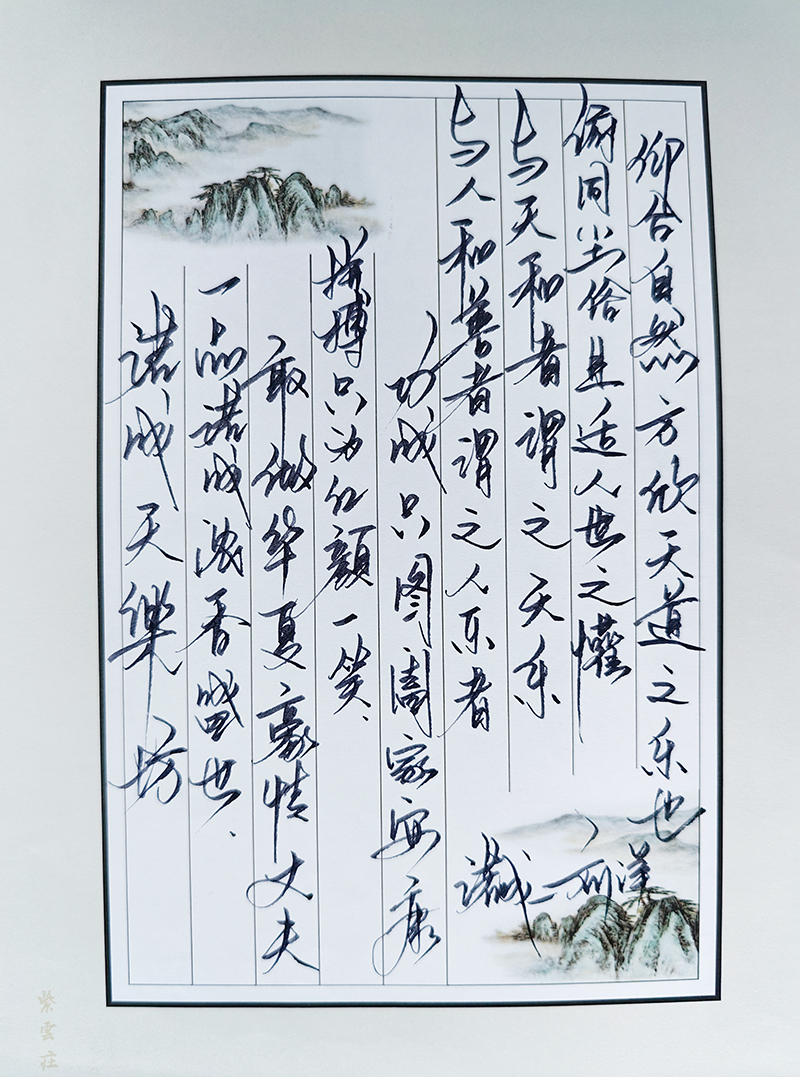 仰合自然方欣天道之乐也
俯同尘俗且适人世之懽
与天和者谓之天乐
与人和善者谓之人乐者
功成只图阖家安康
拼搏只为红颜一笑、
敢做华夏豪情丈夫
一品诺成浓香盛世、
诺成天樂坊
紫雲莊